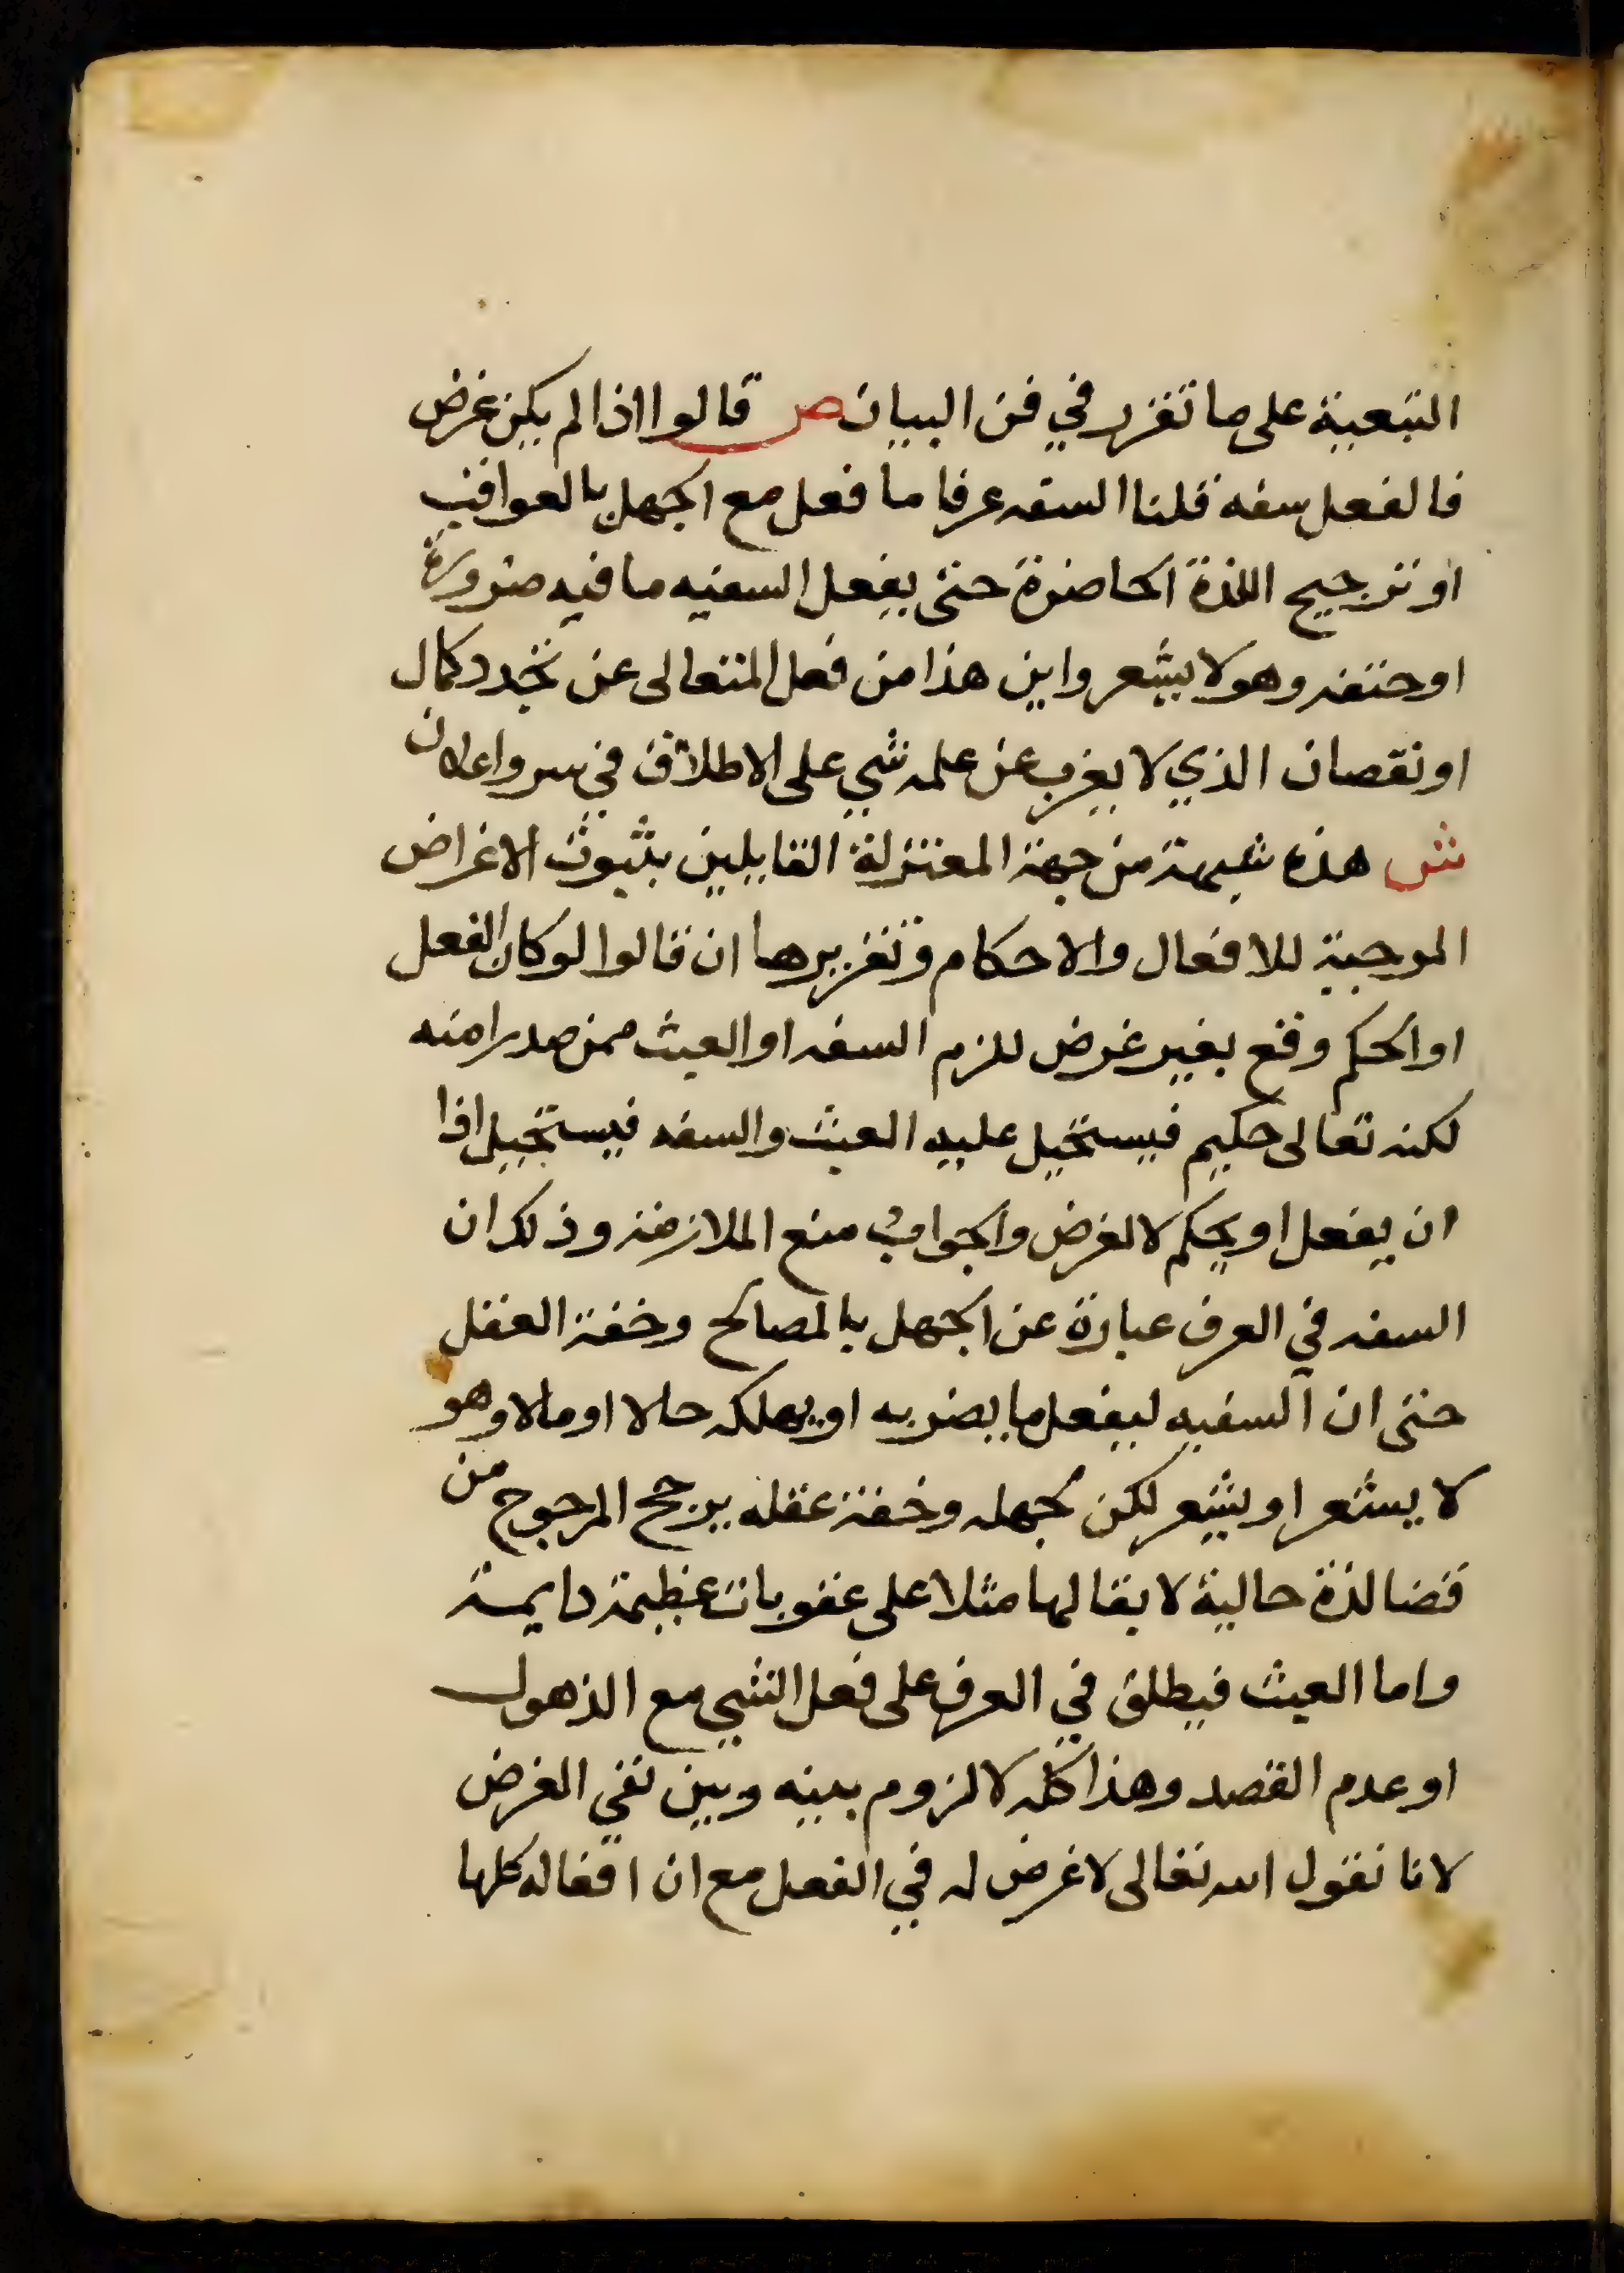 التبعية على ما تقرر في فن البيان ص قالوا اذا لم يكن غرض
فالفعل سفه قلنا السفه عرفا ما فعل مع الجهل بالعواقب
او ترجيح اللذة الحاضرة حتى يفعل السفيه ما فيه ضرورة
او حتفه وهو لا يشعر واين هذا من فعل المتعالى عن تجدد كمال
او نقصان الذي لا يعزب عن علمه شي على الاطلاق في سر واعلان
ش هذه شبهة من جهة المعتزلة القايلين بثبوت الاغراض
الموجبة للافعال والاحكام وتقريرها ان قالوا لو كان الفعل
او الحكم وقع بغير غرض للزم السفه او العبث ممن صدرا منه
لكنه تعالى حكيم فيستحيل عليه العبث والسفه فيستحيل اذا
ان يفعل او يحكم لا لغرض والجواب منع الملازمة وذلك ان
السفه في العرف عبارة عن الجهل بالمصالح وخفة العقل
حتى ان السفيه ليفعل ما يضر به او يهلكه حالا او مالا وهو
لا يشعر او يشعر لكن لجهله وخفة عقله يرجح المرجوح من
قضا لذة حالية لا بقا لها مثلا على عقوبات عظيمة دايمة
واما العبث فيطلق في العرف على فعل الشي مع الذهول
او عدم القصد وهذا كله لا لزوم بينه وبين نفي الغرض
لانا نقول الله تعالى لا غرض له في الفعل مع ان افعاله كلها